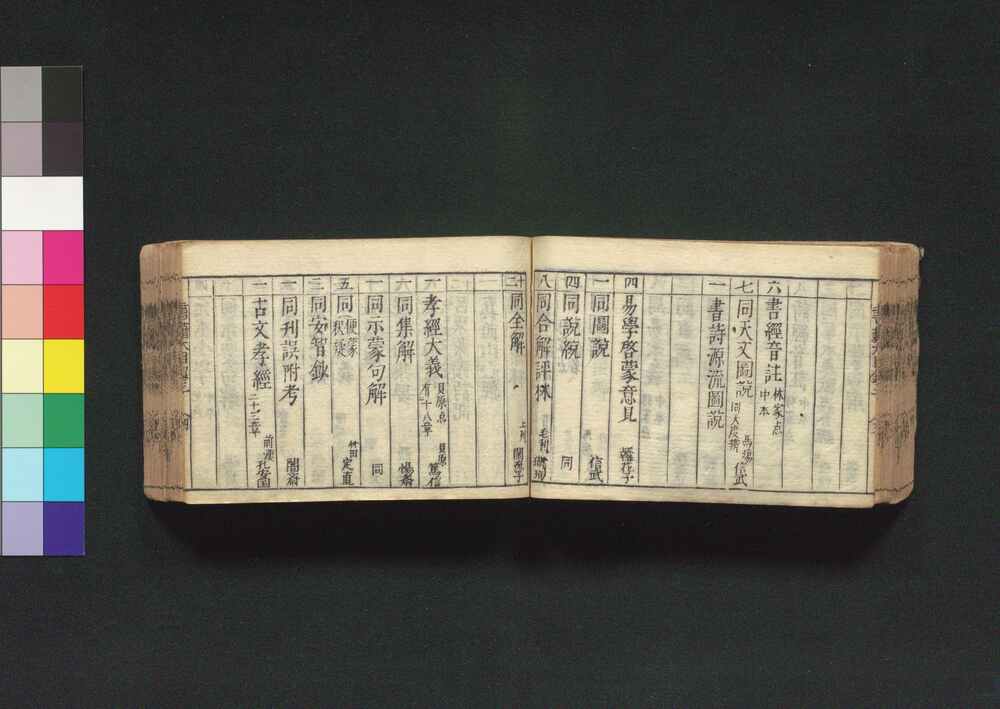 六 書經音註 林家点 中本
七 同天文圖説 同大段携 馬場信武
一 書詩源流圖説
四 易學啓蒙意見 幡存子
一 同圖説 信武
四 同説統 同
八 同合解評林 毛利瑚珀
十二 同全解
一 孝經大義 貝原点 有二十八章 貝原篤信
六 同集解 惕齋
一 同示蒙句解 同
五 同 便蒙 釈疑 竹田定直
三 同安智鈔
一 同刊誤附考 闇齋
一 古文孝經 二十二章 前漢孔安国